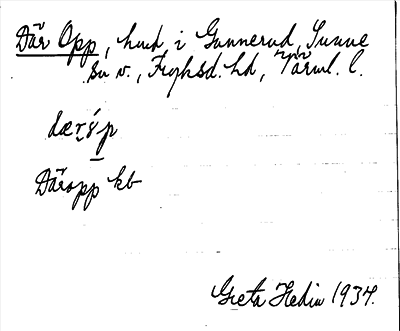 Där Opp, hmd, i Gunnerud, Sunne
sn v., Fryksd. hd, Värml. l.
dærȯ́p
Däropp kb
Greta Hedin 1934.